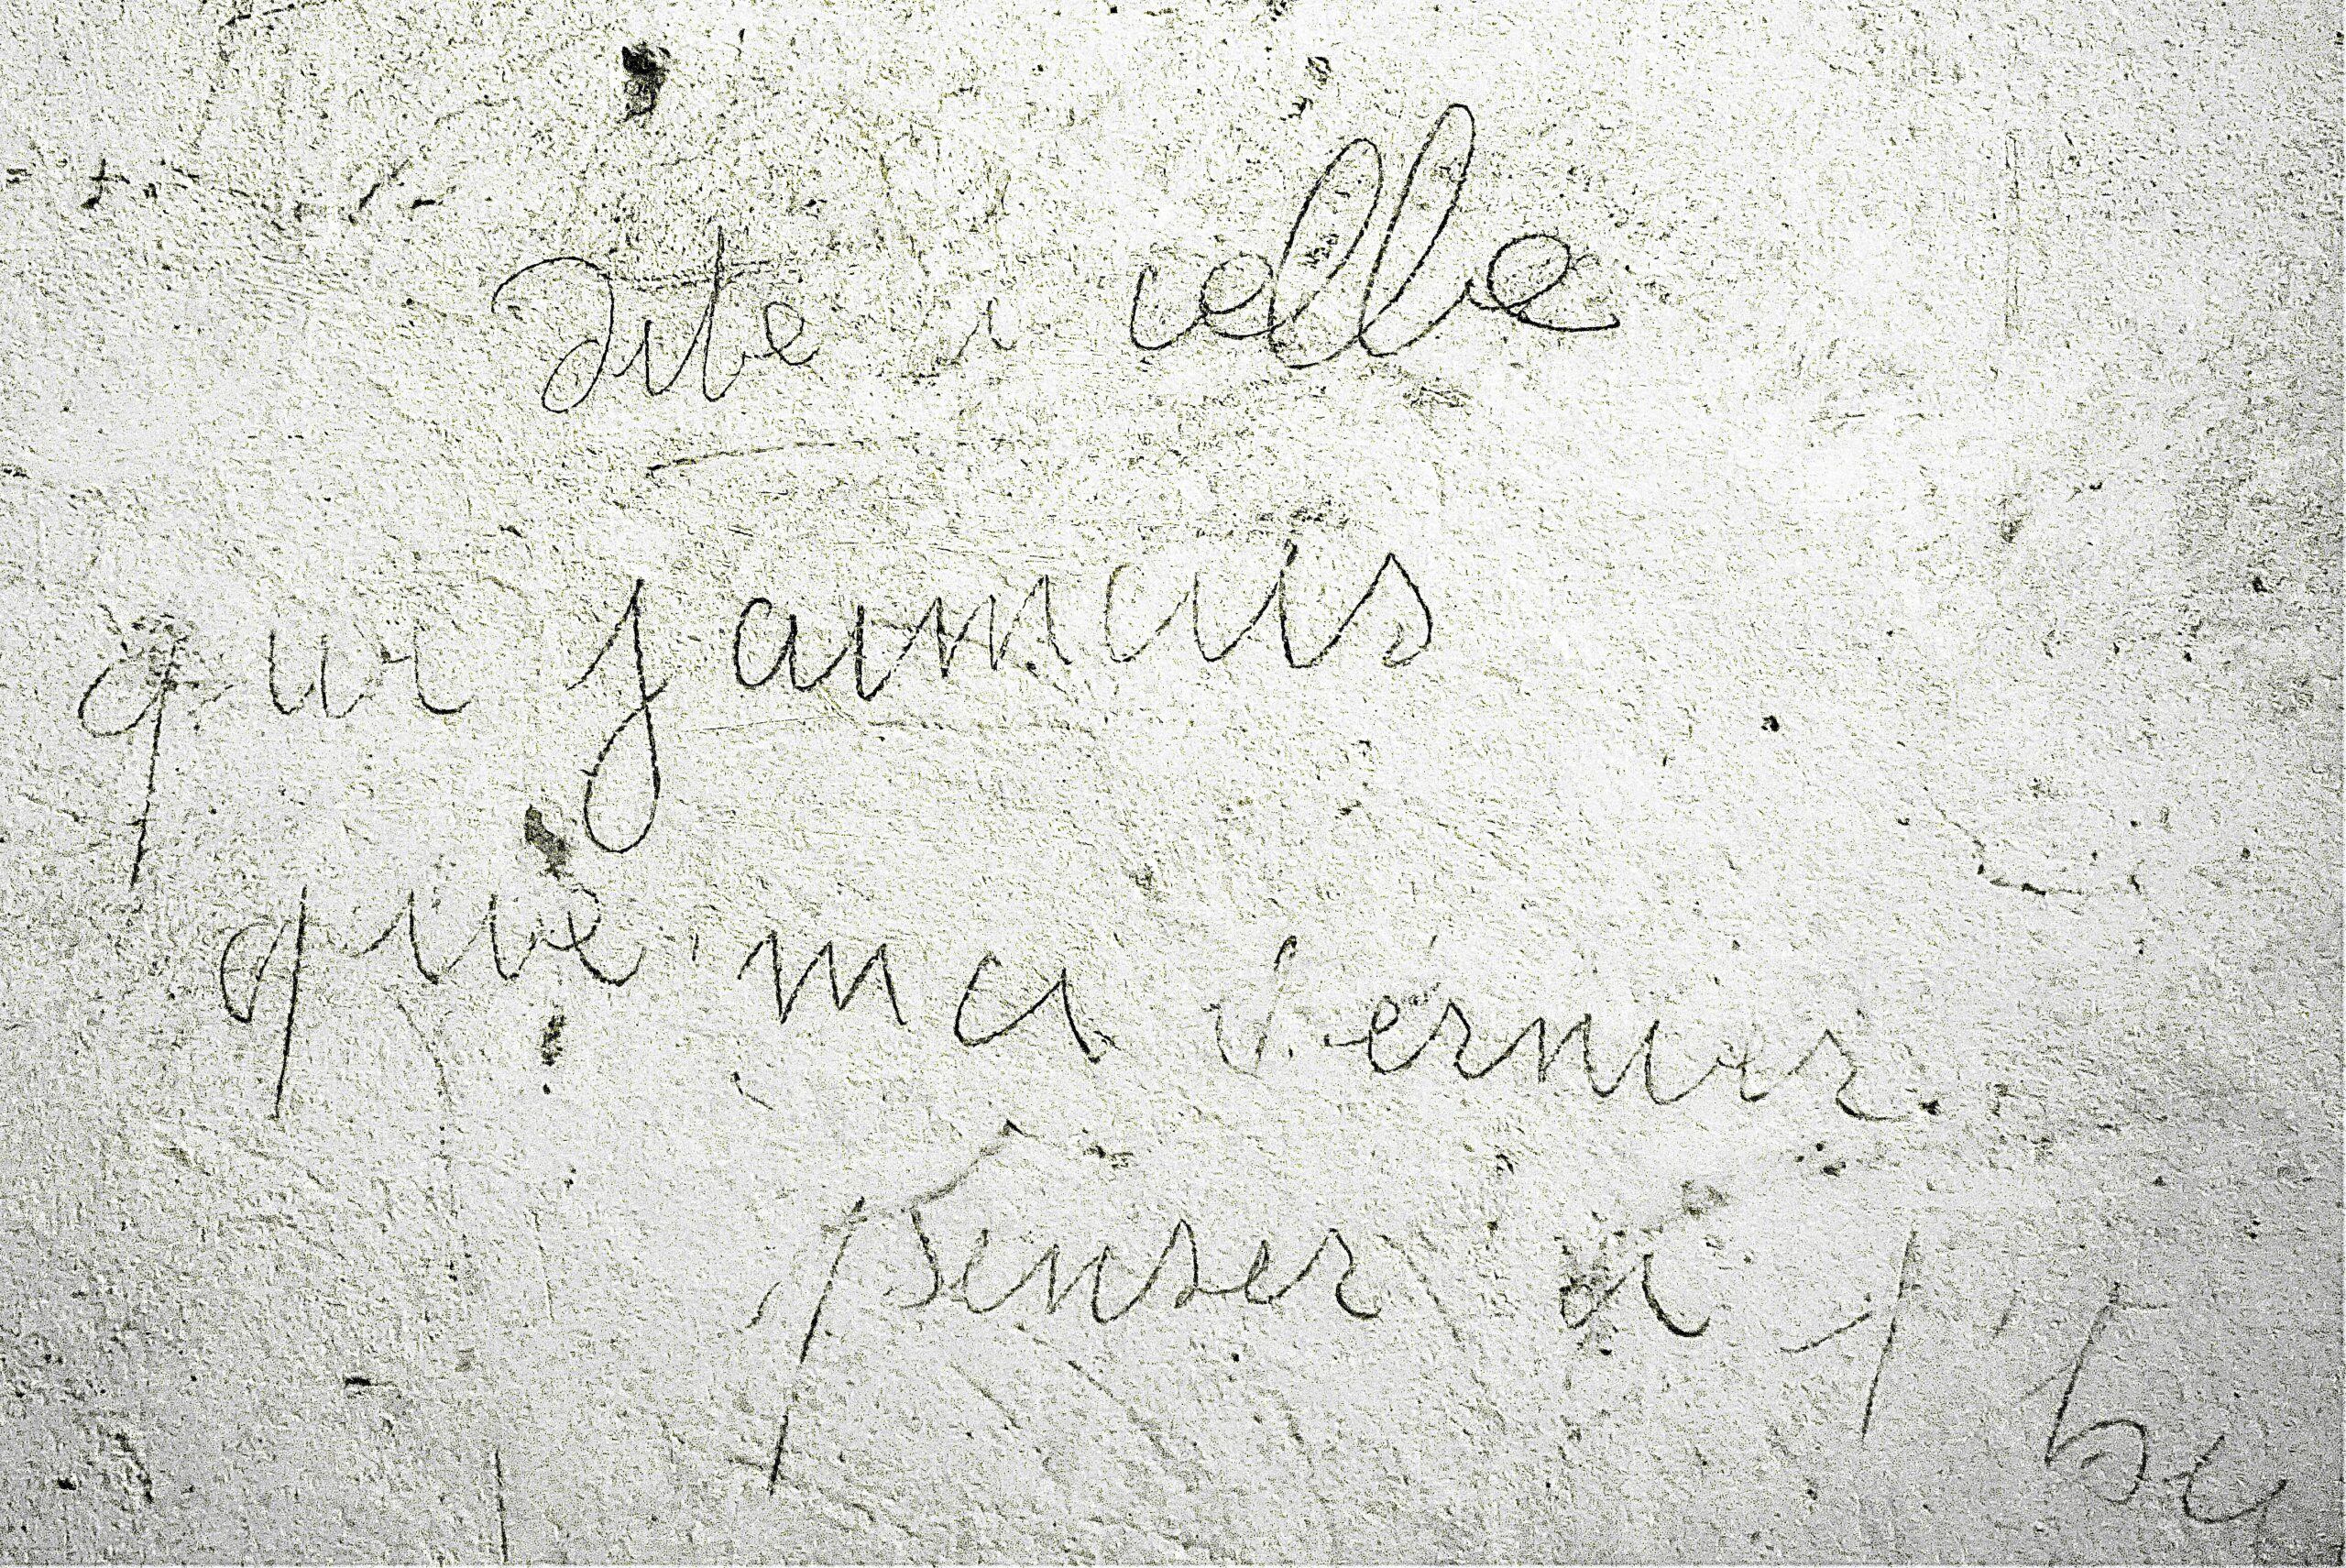 dite a celle
que jaimais
que ma dernier
penser a